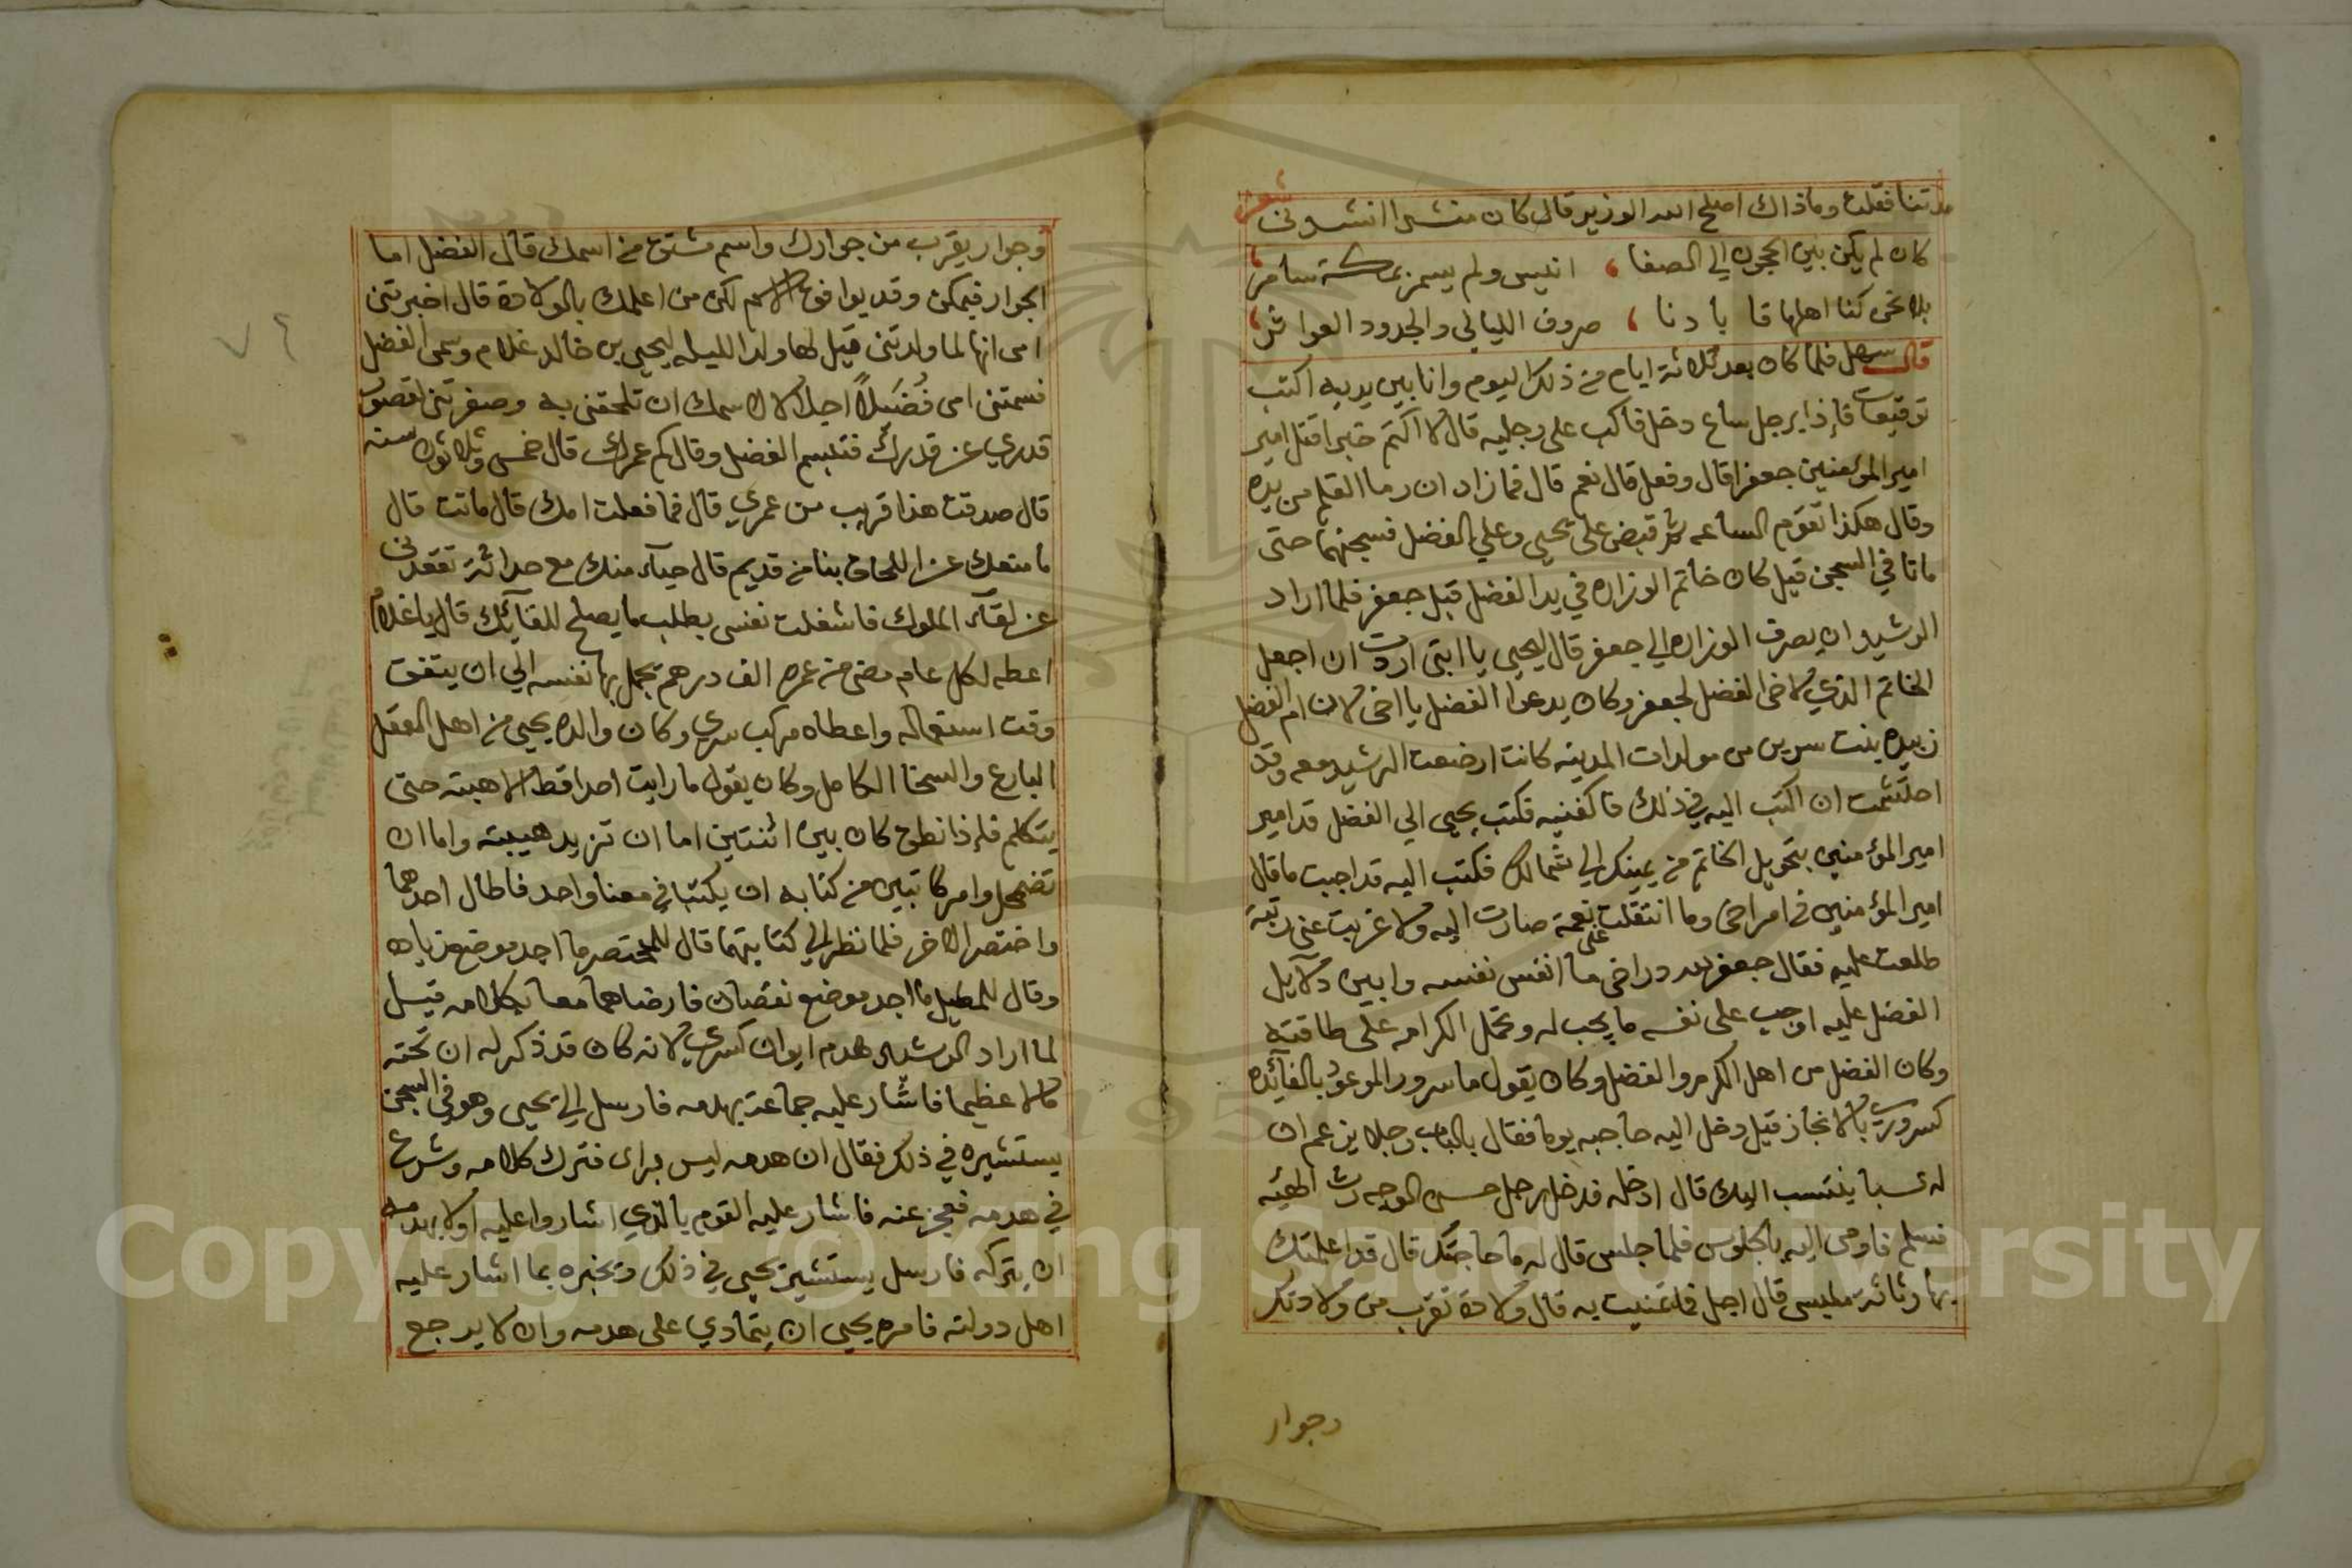 مدتنا فقلت وماذاك اصلح الله الوزير قال كان منشدا انشدني
شعر
كان لم يكن بين الحجون الي الصفا ، انيس ولم يسمر بمكة سامر ،
بلا نحن كنا اهلها فا بادنا ، صروف الليالي والجدود العواثر ،
قال سهل فلما كان بعد ثلاثة ايام من ذلك اليوم وانا بين يديه اكتب
توقيعات فإذا برجل ساع دخل فاكب على رجليه قال لا اكتم خبرا قتل امير
امير المؤمنين جعفرا قال وفعل قال نعم قال فما زاد ان رما القلم من يده
وقال هكذا تقوم الساعه ثم قبض على يحيى وعلي الفضل فسجنهما حتى
ماتا في السجن قيل كان خاتم الوزاره في يد الفضل قبل جعفر فلما اراد
الرشيد ان يصرف الوزاره الي جعفر قال ليحيى يا ابتى اردت ان اجعل
الخاتم الذي لاخى الفضل لجعفر وكان يدعوا الفضل يا اخى لان ام الفضل
زبيده بنت سرين من مولدات المدينه كانت ارضعت الرشيد معه وقد
احتشمت ان اكتب اليه في ذلك فاكفنيه فكتب يحيى الي الفضل قد امير
امير المؤمنين بتحويل الخاتم من يمينك الي شمالك فكتب اليه قد اجبت ما قال
امير المؤمنين في امر اخى وما انتقلت على نعمة صارت اليه ولا غربت عنى رتبة
طلعت عليه فقال جعفر لله در اخى ما انفس نفسه وابين دلايل
الفضل عليه اوجب على نفسه ما يجب له وتحمل الكرامه على طاقته
وكان الفضل من اهل الكرم والفضل وكان يقول ما سرور الموعود بالفائده
كسروري بالانجاز قيل دخل اليه حاجبه يوما فقال بالباب رجلا يزعم ان
له نسبا ينتسب اليك قال ادخله فدخل رجل حسن الوجه رث الهئيه
فسلم فاومى اليه بالجلوس فلما جلس قال له ما حاجتك قال قد اعلمتك
بها رثاثة ملبسى قال اجل فما تمنيت به قال ولادة تقرب من ولادتك
وجوار
وجوار يقرب من جوارك واسم مشتق من اسمك قال الفضل اما
الجوار فيمكن وقد يوافق الاسم لكن من اعلمك بالولادة قال اخبرتنى
امى انها لما ولدتنى قيل لها ولد الليله ليحيى بن خالد غلام وسمى الفضل
فسمتنى امى فُضَيلاً اجلالا لاسمك ان تلحقنى به وصغرتنى لقصور
قدري عن قدرك فتبسم الفضل وقال كم عمرك قال خمس وثلاثون سنه
قال صدقت هذا قريب من عمري قال فما فعلت امك قال ماتت قال
ما منعك عن اللحاق بنا من قديم قال حياء منك مع حداثة تقعدنى
عن لقاء الملوك فاشغلت نفسى بطلب ما يصلح للقائك قال يا غلام
اعطه لكل عام مضى من عمره الف درهم يجمل بها نفسه الي ان يتفق
وقت استعماله واعطاه مركب سري وكان والده يحيى من اهل العقل
البارع والسخا الكامل وكان يقول ما رايت احدا قط الا هبته حتى
يتكلم فإذا نطق كان بين اثنتين اما ان تزيد هيبته واما ان
تضمحل وامر كاتبين من كتابه ان يكتبا في معنا واحد فاطال احدهما
واختصر الاخر فلما نظر الي كتابتهما قال للمختصر ما اجد موضع زياده
وقال للمطيل ما اجد موضع نقصان فارضاهما معا بكلامه قيل
لما اراد الرشيد هدم ايوان كسري لانه كان قد ذكر له ان تحته
مالا عظيما فاشار عليه جماعة بهدمه فارسل الي يحيى وهو في السجن
يستشيره في ذلك فقال ان هدمه ليس براى فترك كلامه وشرع
في هدمه فعجز عنه فاشار عليه القوم يا الذي اشاروا عليه اولا بهدمه
ان يتركه فارسل يستشير يحيى في ذلك ويخبره بما اشار عليه
اهل دولته فامره يحيى ان يتمادي على هدمه وان لا يرجع
Copyright © King Saud University